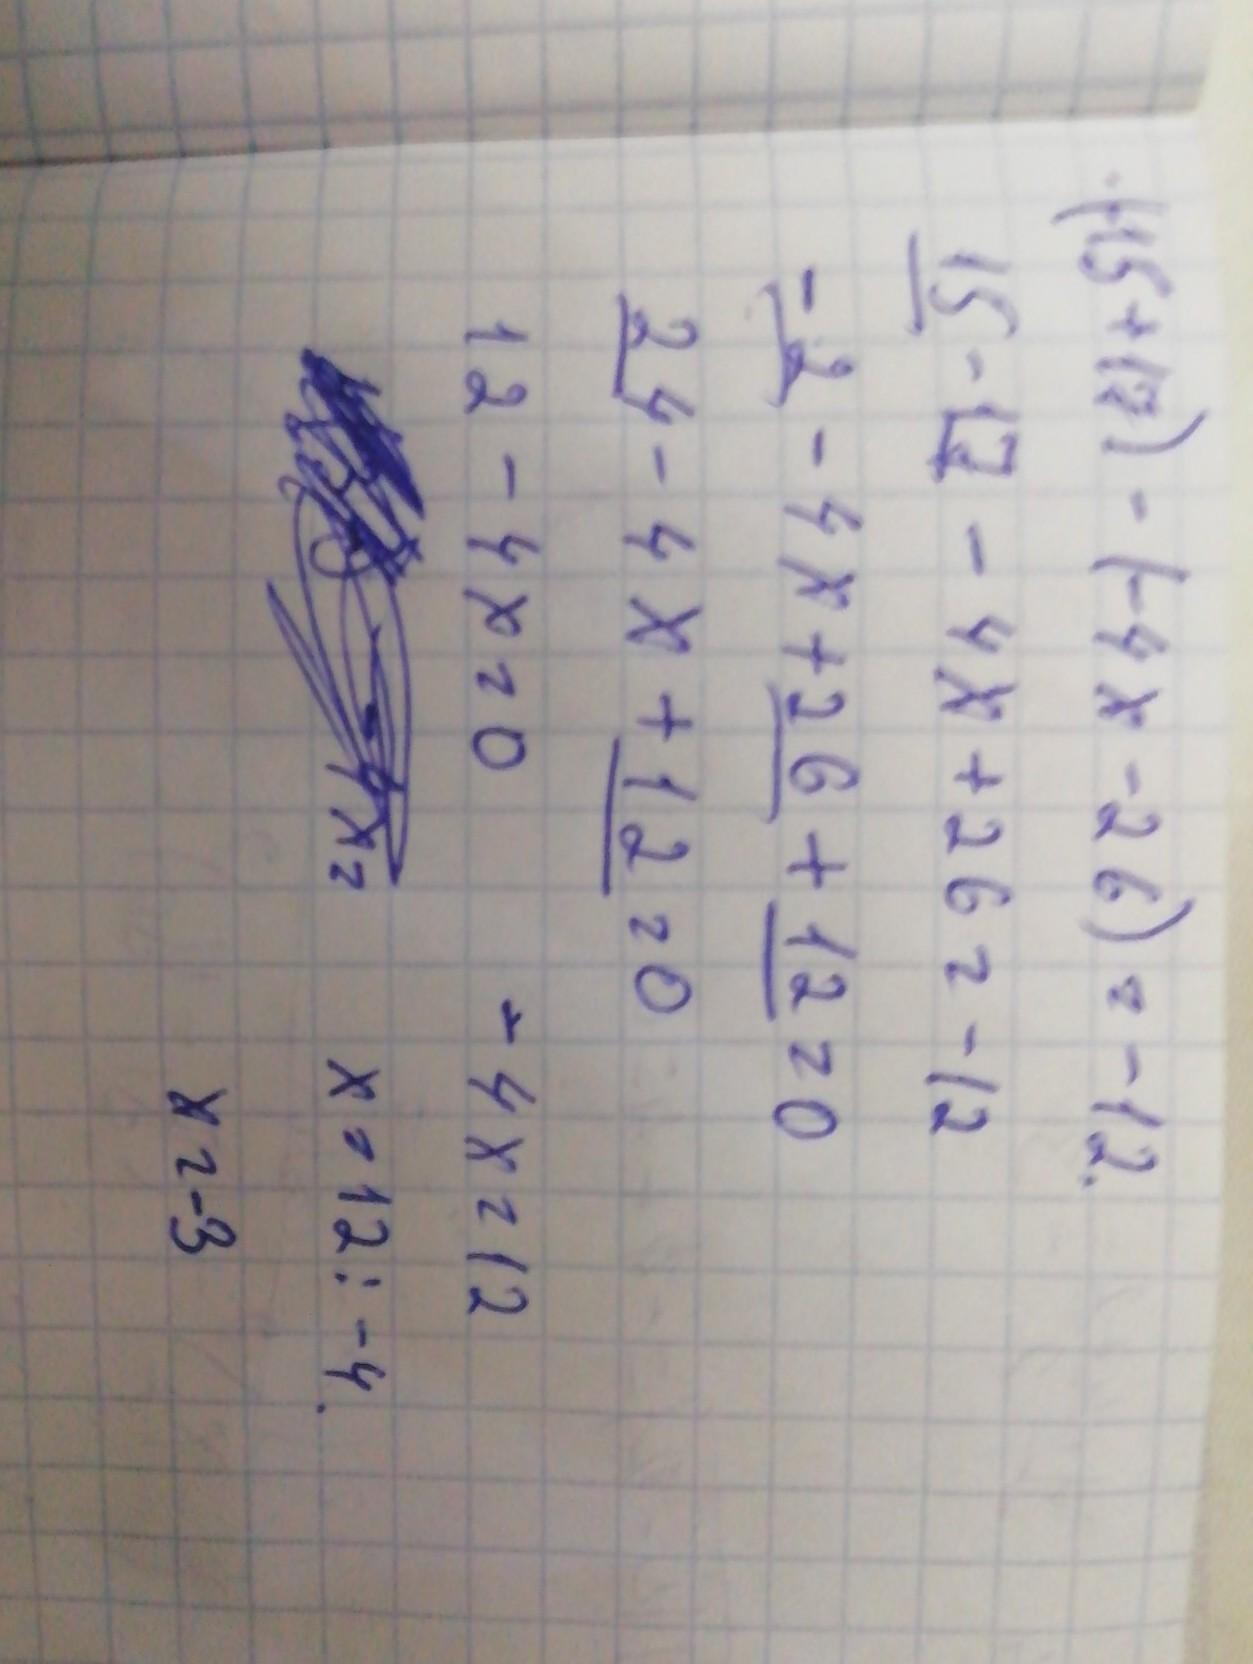 (-15+17)-(-4x-26)=-12.
15-17-4x+26=-12
-2-4x+26+12=0
24-4x+12=0
12-4x=0 -4x=12
x= x=12:-4.
x=-3